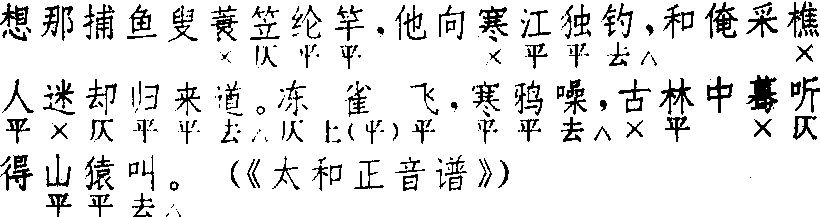 想那捕鱼叟蓑笠纶竿，他向寒江独钓，和俺采樵
× 仄 平 平 × 平 平 去△ ×
人迷却归来道。冻雀飞，寒鸦噪，古林中蓦听
平 × 仄 平 平 去△ 仄 上（平）平 平 平 去△ × 平 × 仄
得山猿叫。（《太和正音谱》）
平 平 去△